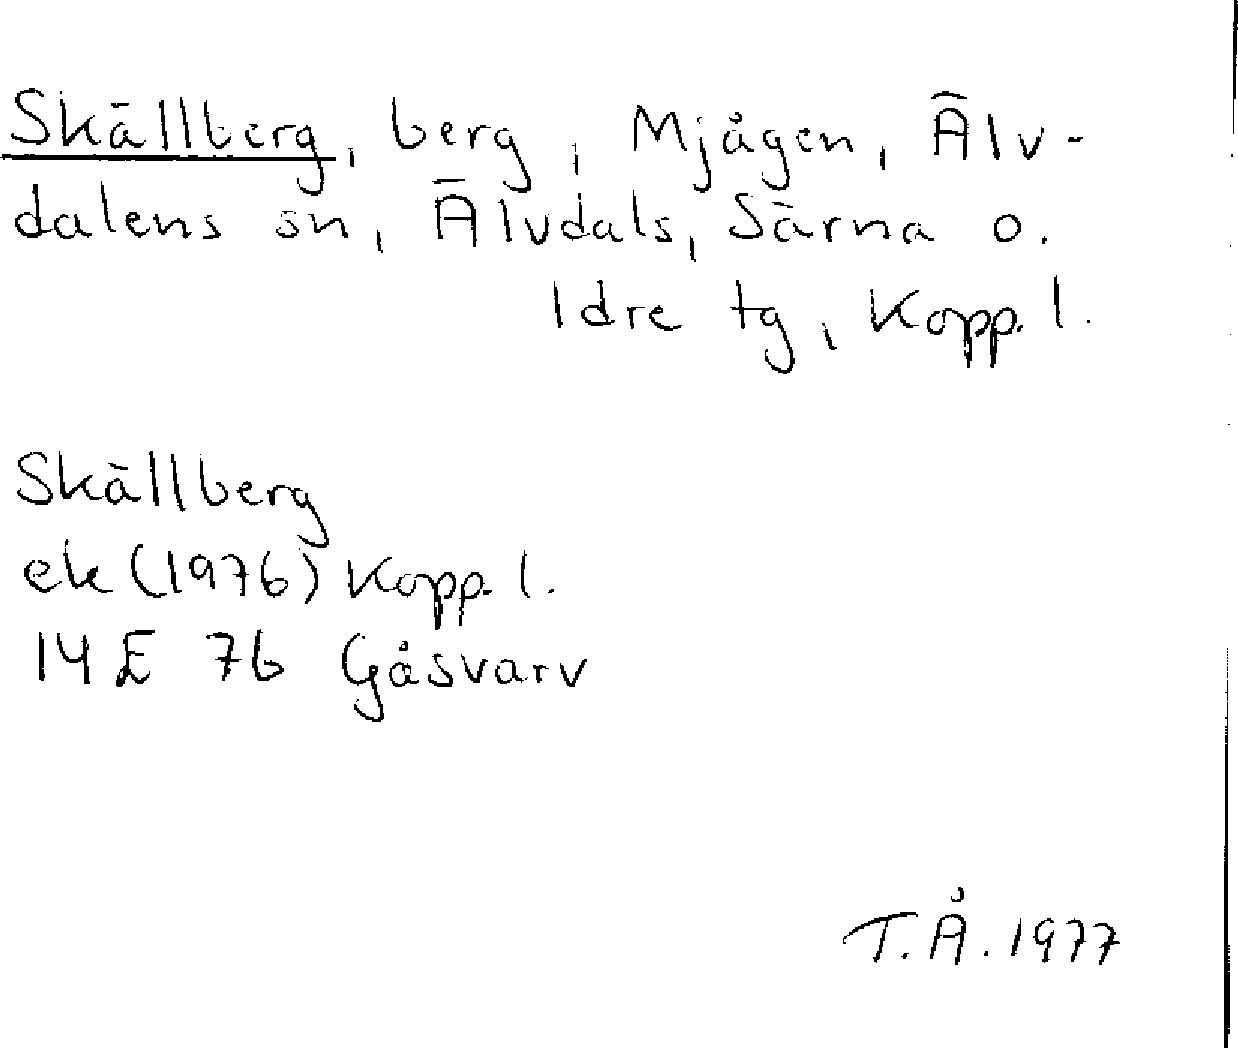 Skällberg, berg, Mjågen, Älv-
dalens sn, Älvdals, Särna o.
Idre tg, Kopp. l.
Skällberg
ek (1976) Kopp. l.
14E 7b Gåsvarv
T.Å. 1977